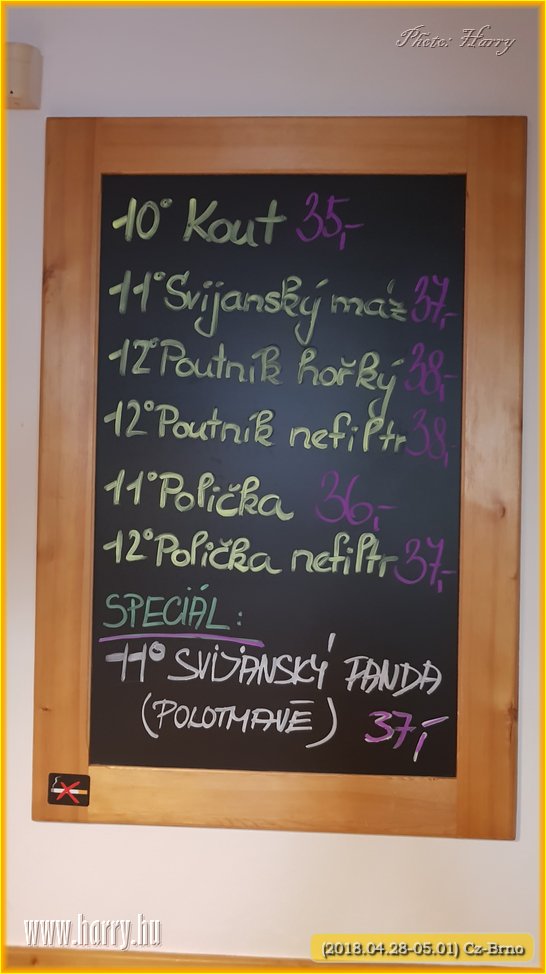 Photo: Harry
10° Kout 35,-
11° Svijanský máz 37,-
12° Poutník hořký 38,-
12° Poutník nefiltr 38,-
11° Polička 36,-
12° Polička nefiltr 37,-
SPECIÁL:
11° SVIJANSKÝ FANDA
(POLOTMAVÉ) 37,-
www.harry.hu
(2018.04.28-05.01) Cz-Brno